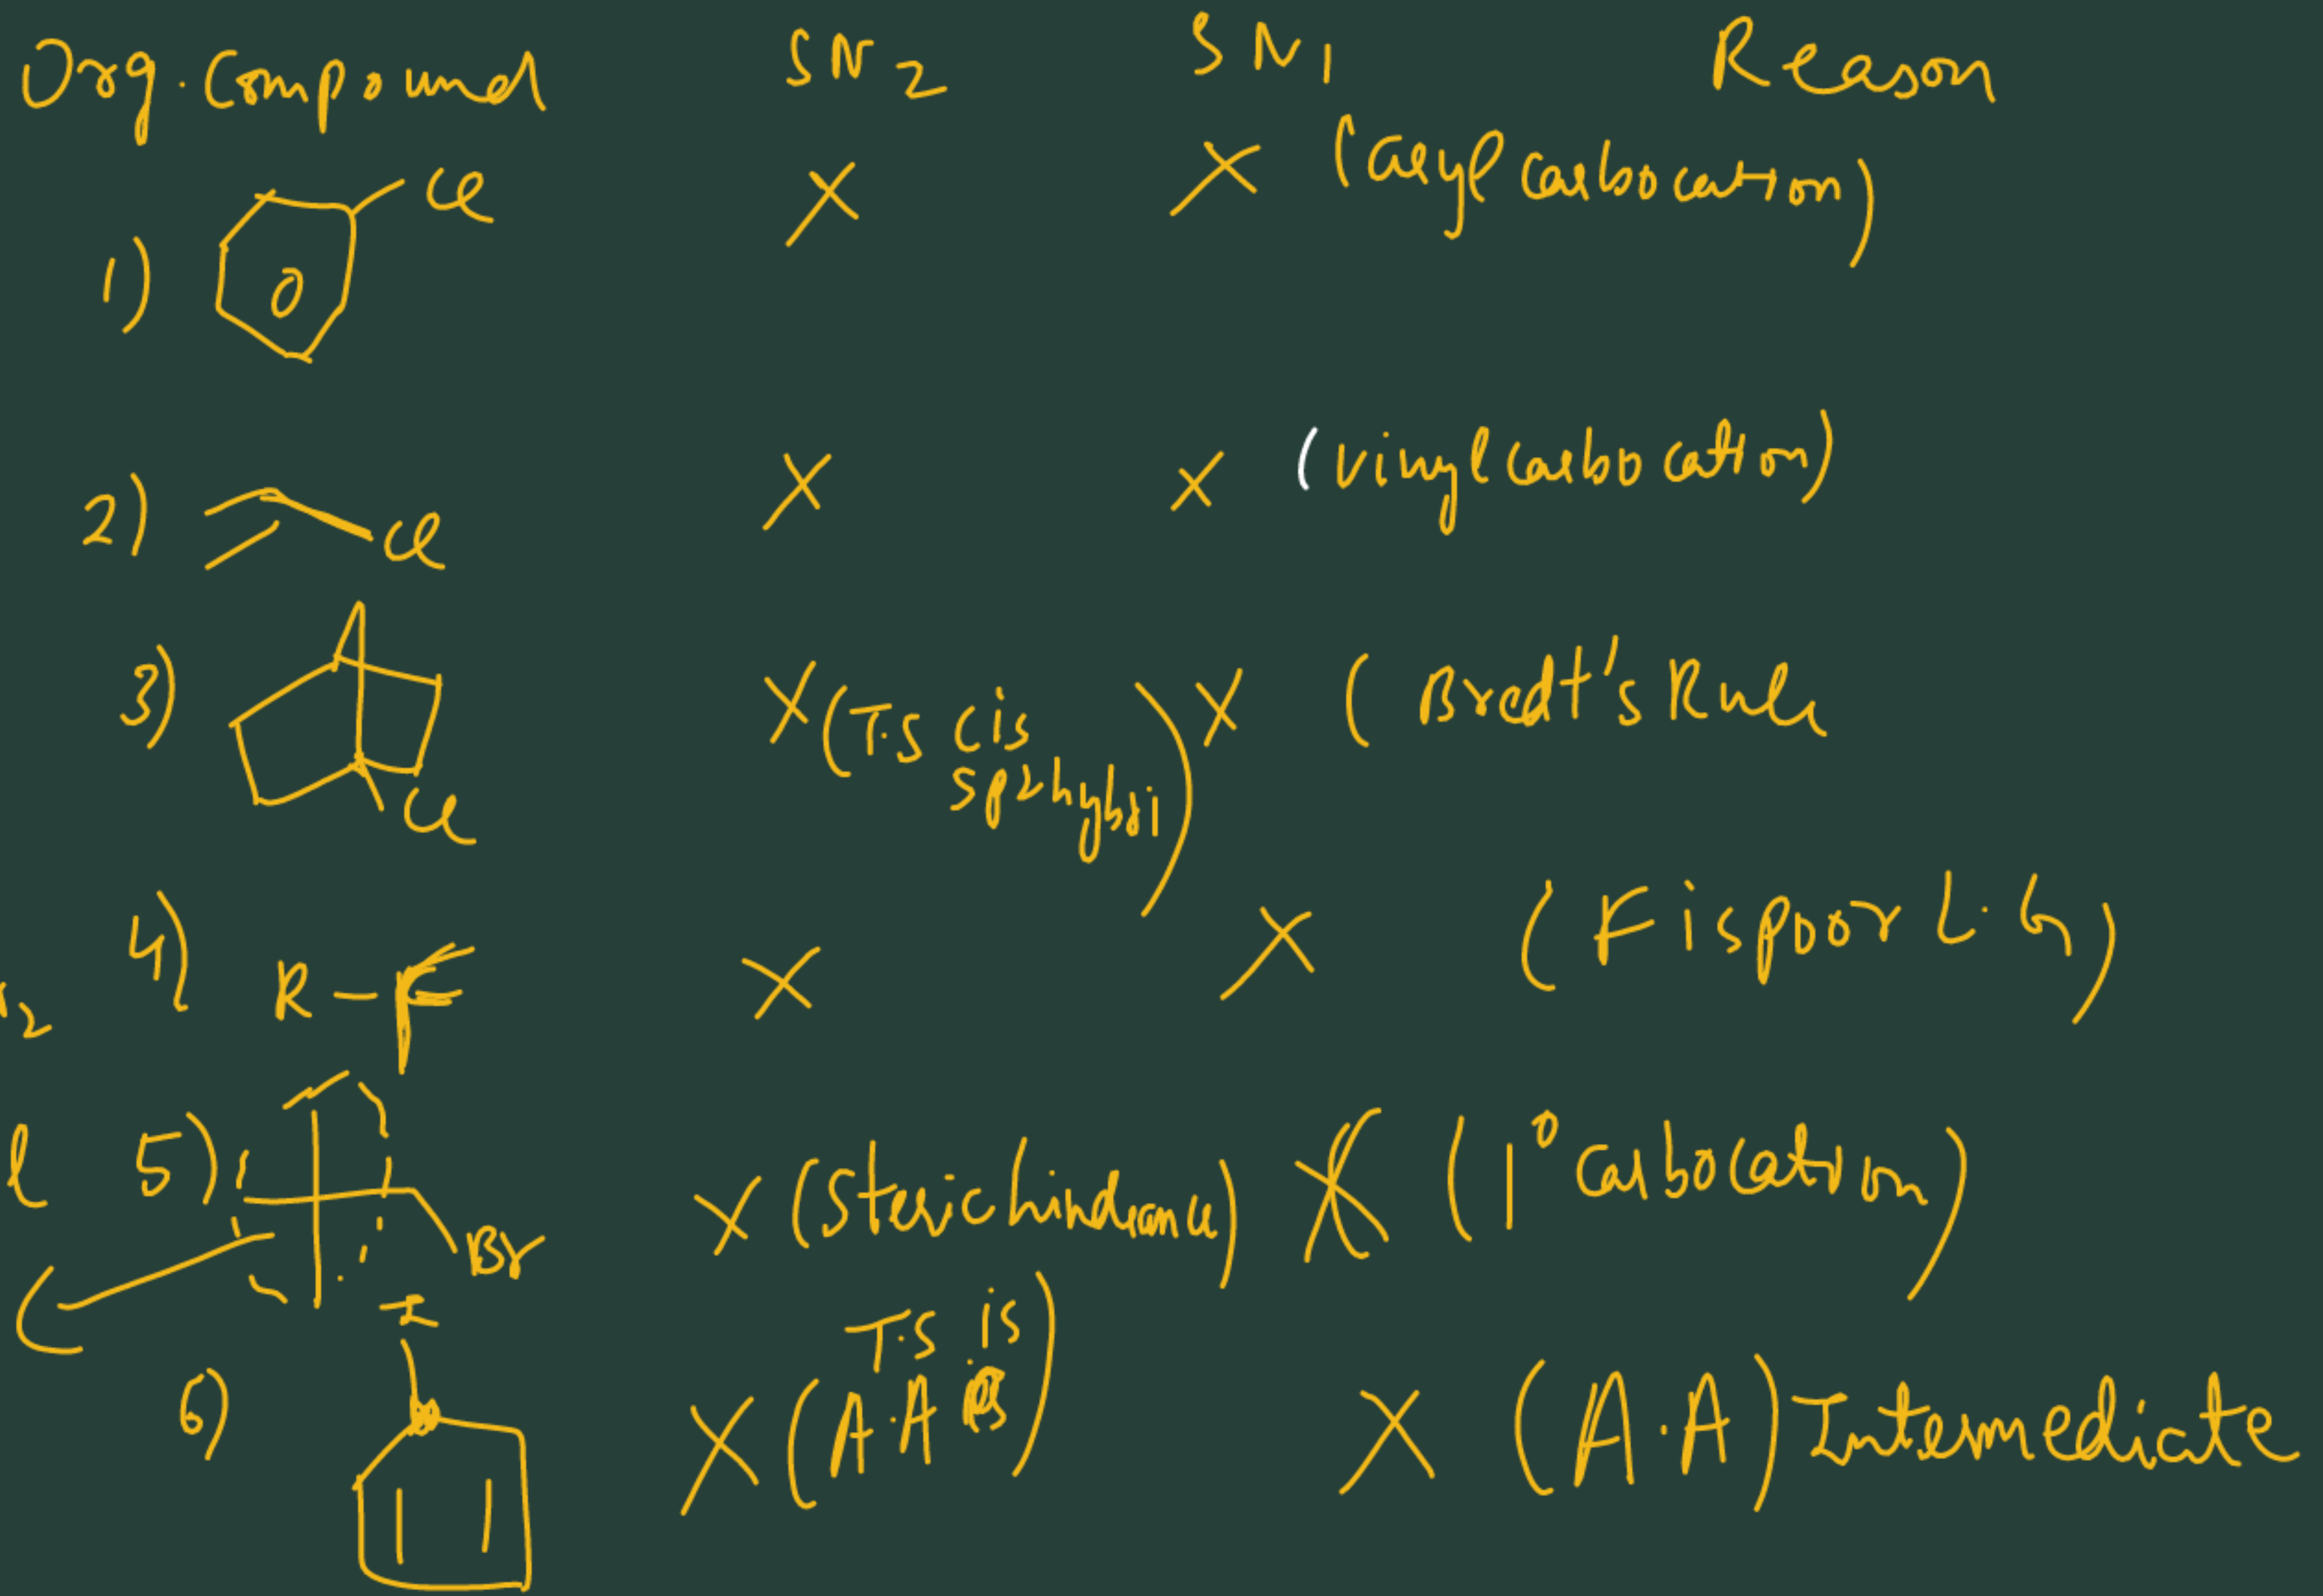 Org. Compound SN2 SN1 Reason
1) Cl X X (aryl carbocation)
2) Cl X X (vinyl carbocation)
3) Cl X (T.S C is sp2 hybri) X (Bredt's Rule
4) R-F X X (F is poor L.G)
5) Br X (Steric hindrance) X (1° Carbocation)
6) I X (T.S is A.A) X (A.A) Intermediate